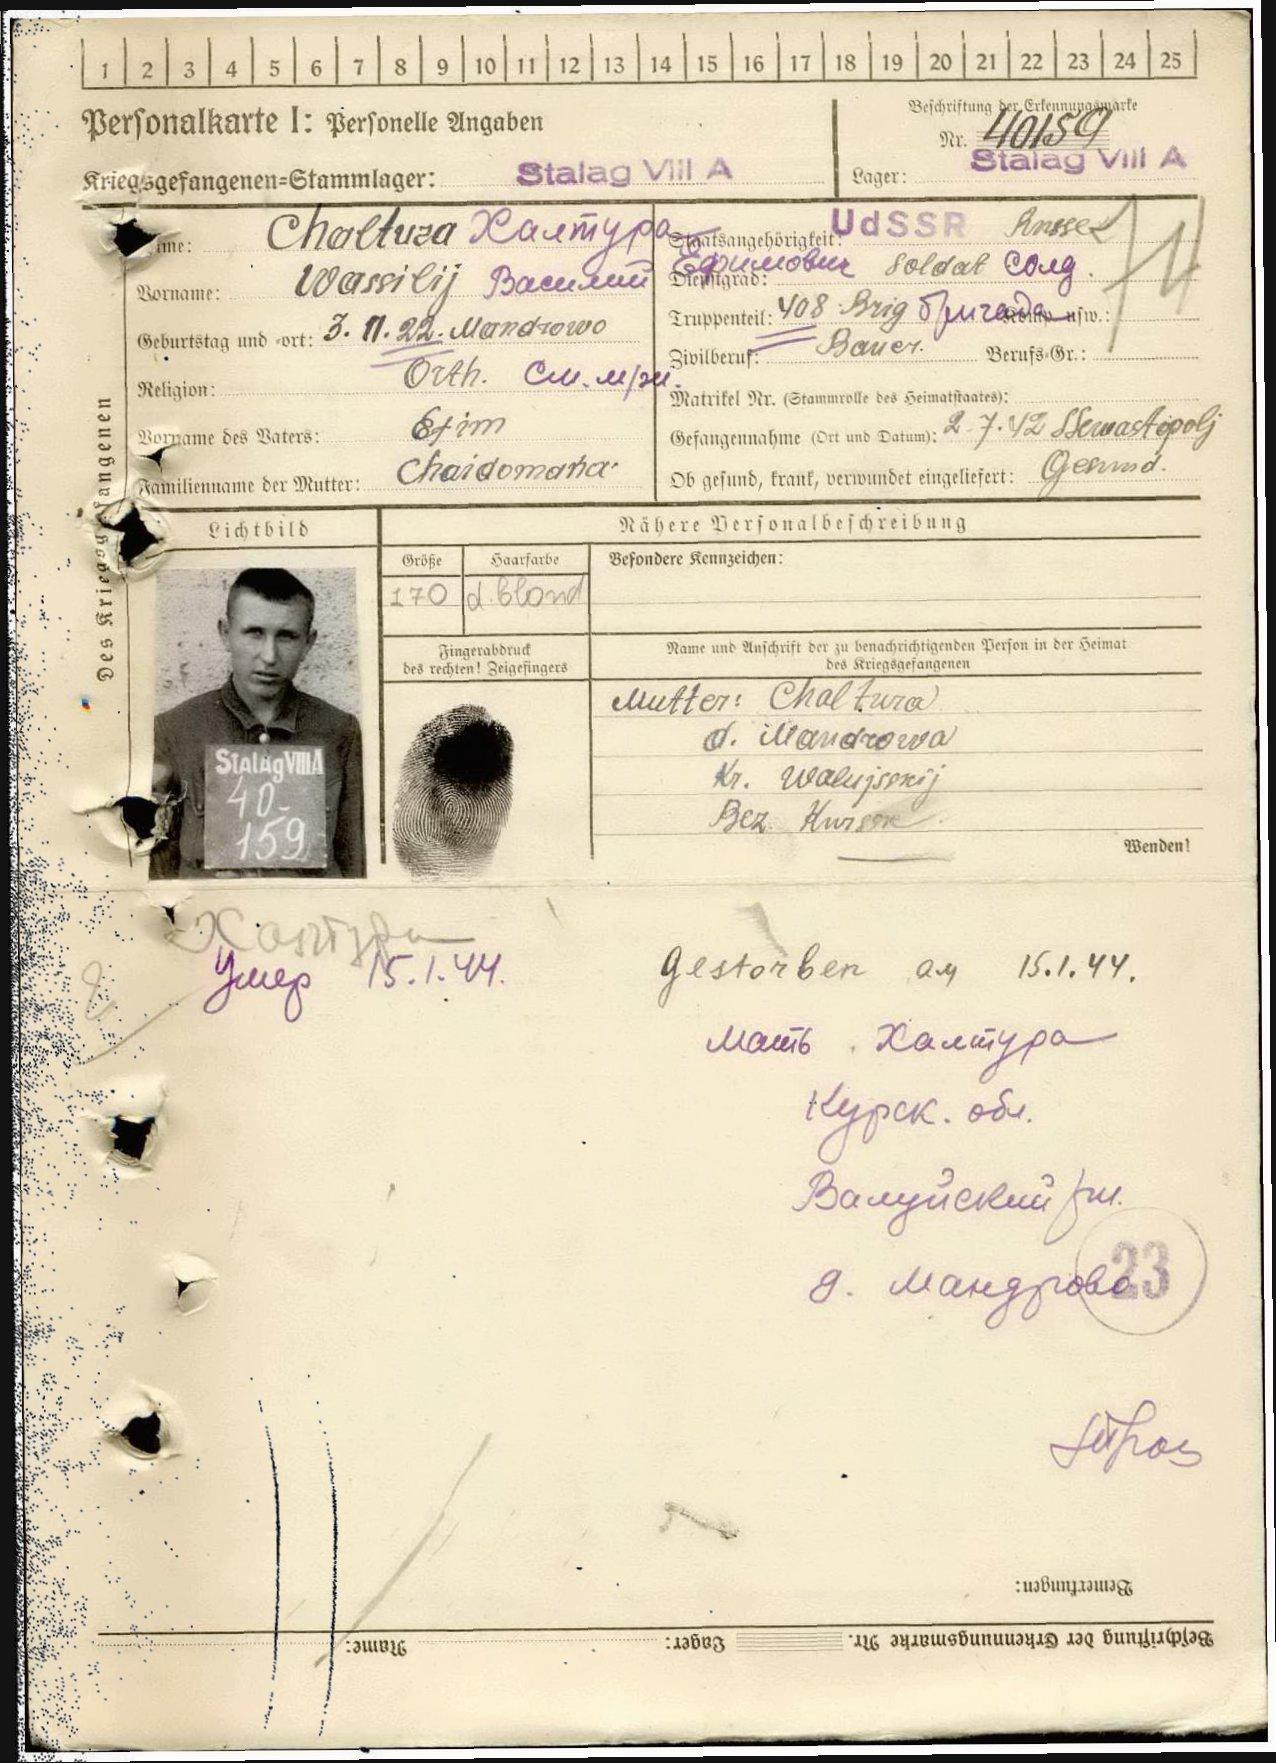 1 2 3 4 5 6 7 8 9 10 11 12 13 14 15 16 17 18 19 20 21 22 23 24 25
Personalkarte I: Personelle Angaben
Beschriftung der Erkennungsmarke
Nr. 40159
Kriegsgefangenen=Stammlager: Stalag VIII A
Lager: Stalag VIII A
Des Kriegsgefangenen
Name: Chaltura Халтура
Vorname: Wassilij Василий Ефимович
Geburtstag und =ort: 3. 11. 22. Mandrowo
Religion: Orth. См. м/рж.
Vorname des Vaters: Efim
Familienname der Mutter:
Staatsangehörigkeit: UdSSR Russe
Dienstgrad: Soldat Солд.
Truppenteil: 408 Brig бригада Komp. usw.:
Zivilberuf: Bauer. Berufs=Gr.:
Matrikel Nr. (Stammrolle des Heimatstaates):
Gefangennahme (Ort und Datum): 2. 7. 42 Ssewastopolj
Ob gesund, krank, verwundet eingeliefert: Gesund.
Lichtbild
Nähere Personalbeschreibung
Größe Haarfarbe Besondere Kennzeichen:
170 d. blond
Fingerabdruck
des rechten! Zeigefingers
Name und Anschrift der zu benachrichtigenden Person in der Heimat
des Kriegsgefangenen
Mutter: Chaltura
d. Mandrowa
Kr. Walujskij
Bez. Kursk
Wenden!
Stalag VIII A
40-
159
Халтура
Умер 15.1.44.
Gestorben am 15.1.44.
Мать Халтура
Курск. обл.
Валуйский р-н.
д. Мандрово
23
Bemerkungen:
Name: Lager: Beschriftung der Erkennungsmarke Nr.